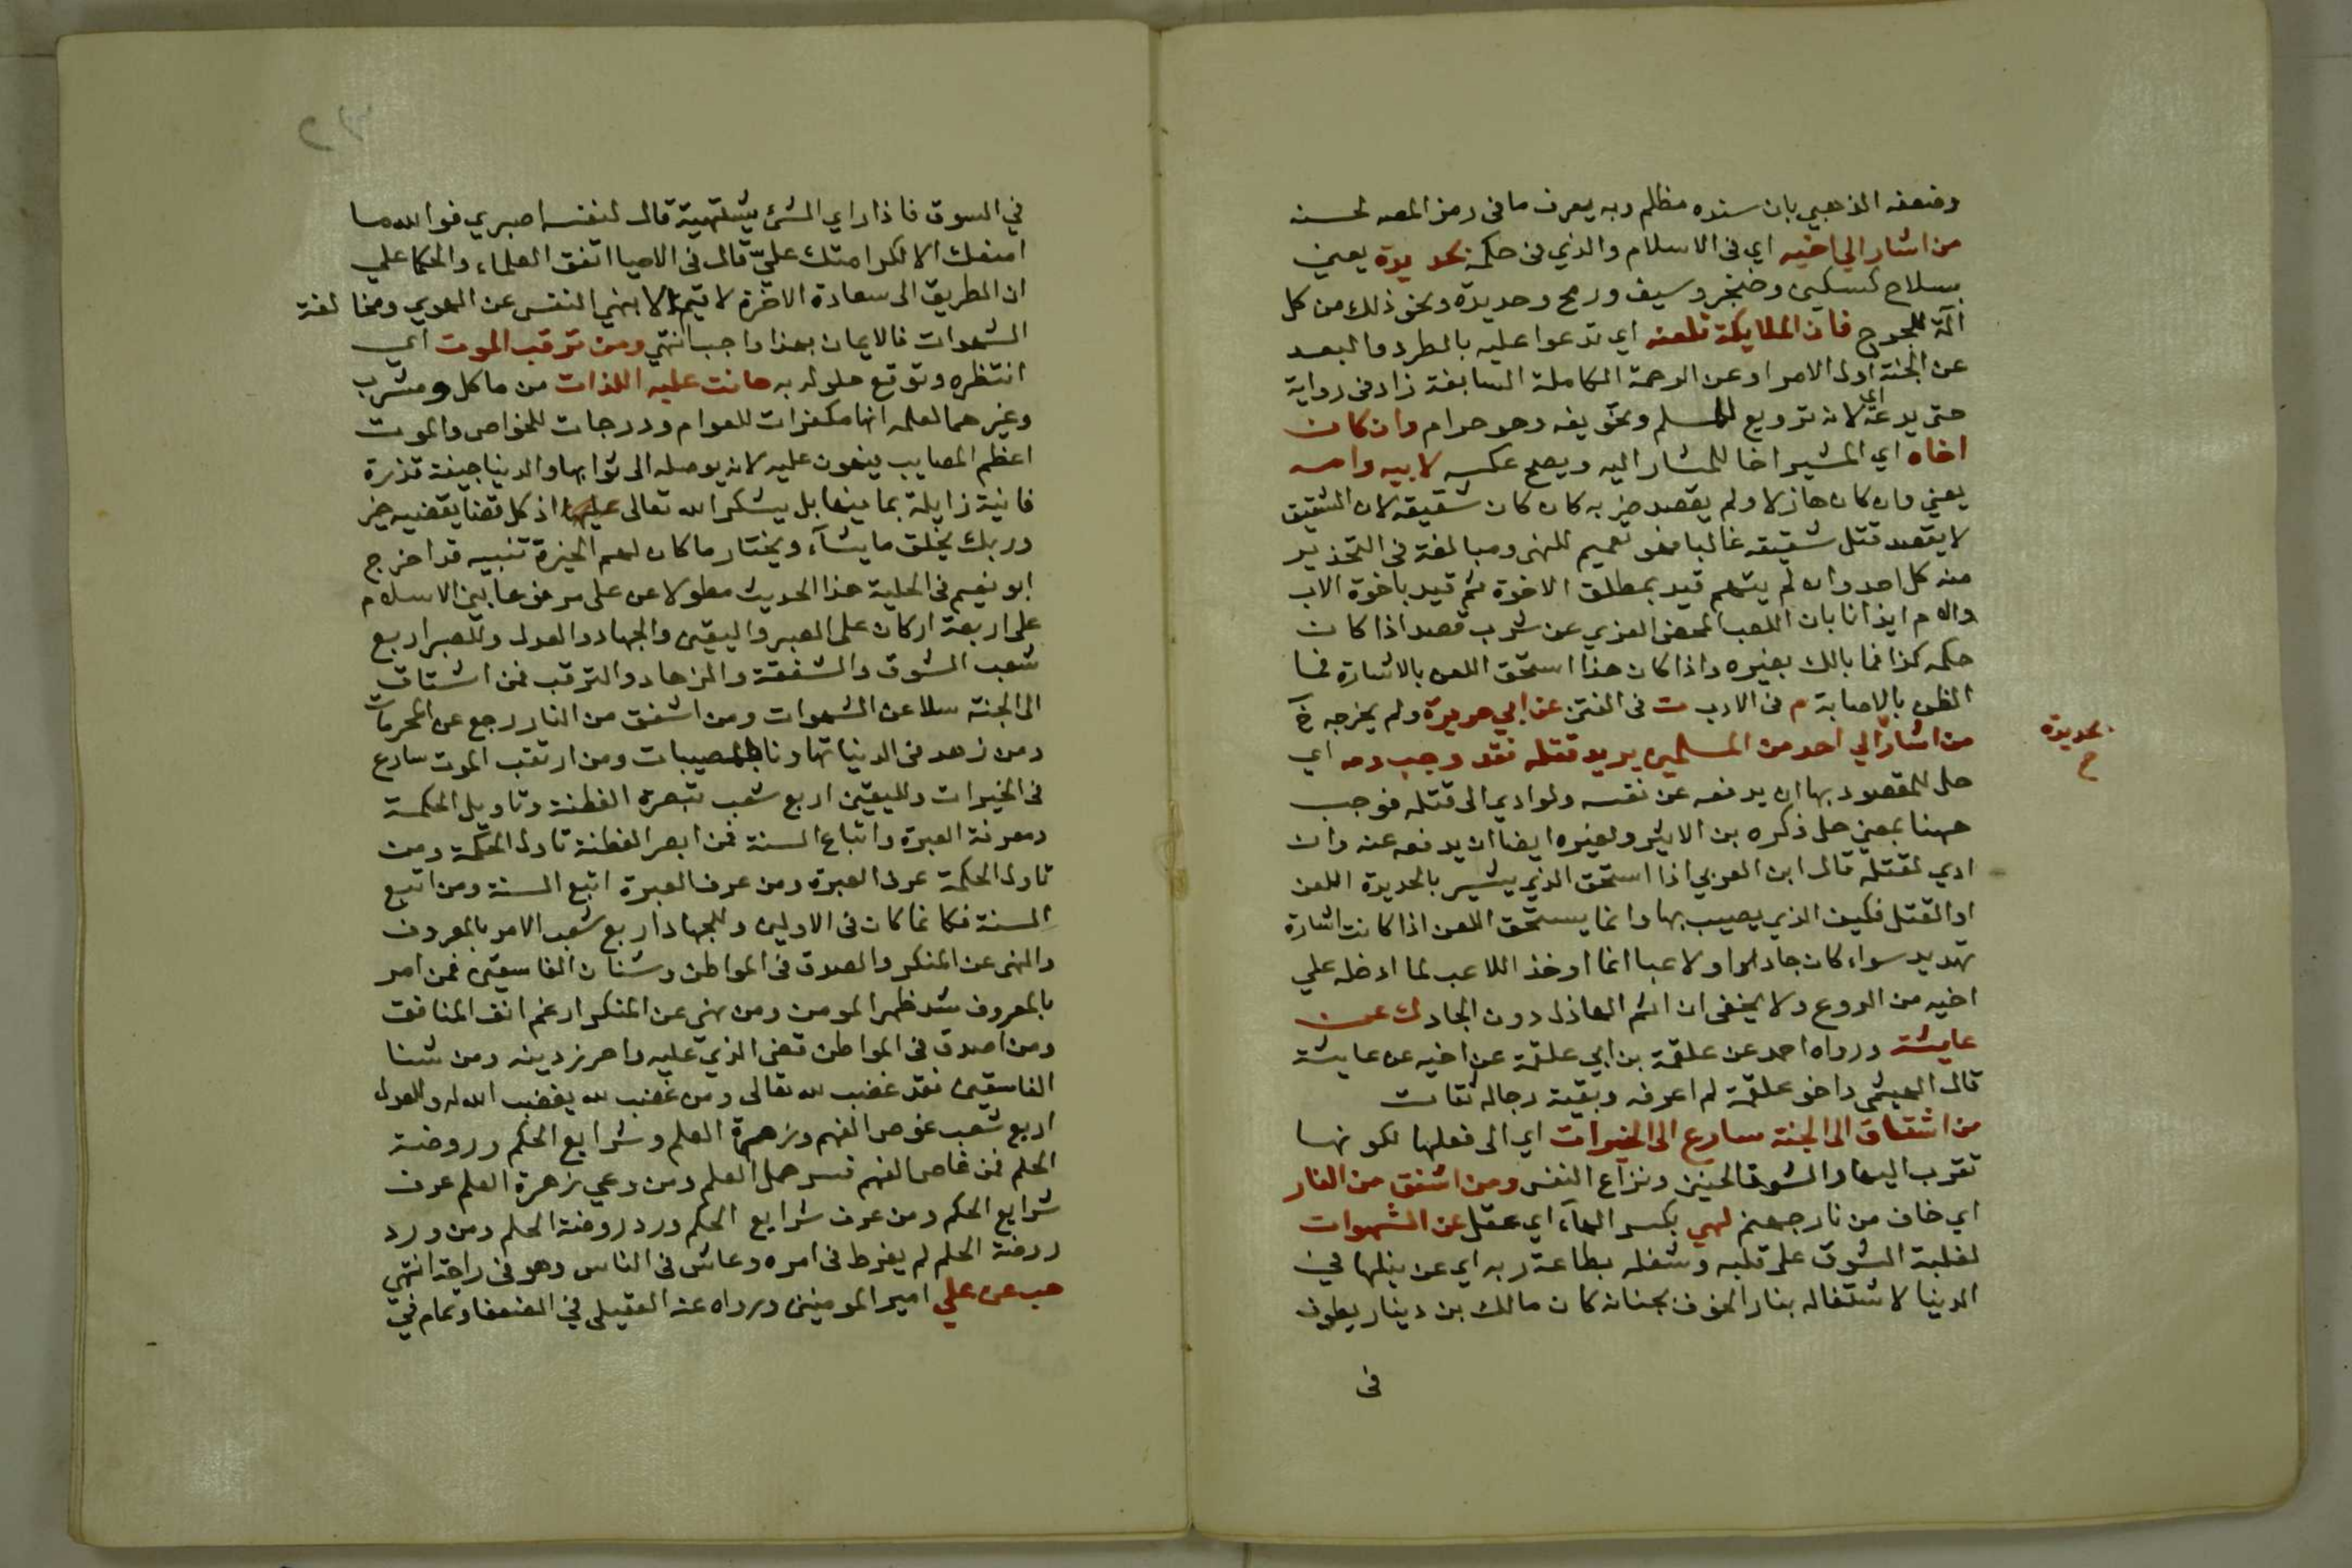 وضعفه الذهبي بان سنده مظلم وبه يعرف ما في رمز المص لحسنه
من اشار الي اخيه اي في الاسلام والذي في حكمه بحديدة يعني
بسلاح كسكين وخنجر وسيف ورمح وحديدة ونحو ذلك من كل
آلة للجرح فان الملايكة تلعنه اي تدعوا عليه بالطرد والبعد
عن الجنة اول الامر او عن الرحمة الكاملة السابغة زاد في رواية
حتي يدعه اي لانه ترويع للمسلم وتخويفه وهو حرام وان كان
اخاه اي المشير اخا للمشار اليه ويصح عكسه لابيه وامه
يعني وان كان هازلا ولم يقصد ضربه كان كان شقيقه لان الشقيق
لا يقصد قتل شقيقه غالبا فهو تعميم للنهي ومبالغة في التحذير
منه كل احد وان لم يتهم قيد بمطلق الاخوة ثم قيد باخوة الاب
والام ايذانا بان اللعب المحض العري عن شوب قصد اذا كان
حكمه كذا فما بالك بغيره واذا كان هذا استحق اللعن بالاشارة فما
الظن بالاصابة م في الادب ت في الفتن عن ابي هريرة ولم يخرجه خ
من اشار الي احد من المسلمين يريد قتله فقد وجب دمه اي
بحديدة
ح
حل للمقصود بها ان يدفعه عن نفسه ولو ادي الى قتله فوجب
ههنا بمعني حل ذكره بن الاثير ولغيره ايضا ان يدفعه عنه وان
ادي لقتله قال ابن العربي اذا استحق الذي يشير بالحديدة اللعن
او القتل فكيف الذي يصيب بها وانما يستحق اللعن اذا كانت اشارة
تهديد سواء كان جادا او لاعبا انما اوخذ اللاعب لما ادخله علي
اخيه من الروع ولا يخفى ان اثم الهازل دون الجاد ك عن
عايشة ورواه احمد عن علقمة بن ابي علقمة عن اخيه عن عايشة
قال الهيثمي واخو علقمة لم اعرفه وبقية رجاله ثقات
من اشتاق الى الجنة سارع الى الخيرات اي الى فعلها لكونها
تقرب اليها والشوق الحنين ونزاع النفس ومن اشفق من النار
اي خاف من نار جهنم لهي بكسر الهاء اي غفل عن الشهوات
لغلبة الشوق على قلبه وشغله بطاعة ربه اي عن نيلها في
الدنيا لاشتغاله بنار الخوف بجنانه كان مالك بن دينار يطوف
في
في السوق فاذا راي الشئ يشتهيه قال لنفسه اصبري فوالله ما
امنعك الا لكرامتك عليّ قال في الاحيا اتفق العلماء والحكما علي
ان الطريق الى سعادة الاخرة لا يتم الا بنهي النفس عن الهوي ومخالفة
الشهوات فالايمان بهذا واجب انتهي ومن ترقب الموت اي
انتظره وتوقع حلوله به هانت عليه اللذات من ماكل ومشرب
وغيرهما لعلمه انها مكفرات للعوام ودرجات للخواص والموت
اعظم المصايب فيهون عليه لانه يوصله الى ثوابها والدنيا جيفة قذرة
فانية زايلة بما فيها بل يشكر الله تعالى عليها اذ كل قضا يقضيه خير
وربك يخلق ما يشآء ويختار ما كان لهم الخيرة تنبيه قد اخرج
ابو نعيم في الحلية هذا الحديث مطولا عن علي مرفوعا بني الاسلام
على اربعة اركان على الصبر واليقين والجهاد والعدل وللصبر اربع
شعب الشوق والشفقة والزهاد والترقب فمن اشتاق
الى الجنة سلا عن الشهوات ومن اشفق من النار رجع عن المحرمات
ومن زهد في الدنيا تهاون بالمصيبات ومن ارتقب الموت سارع
في الخيرات ولليقين اربع شعب تبصرة الفطنة وتاويل الحكمة
ومعرفة العبرة واتباع السنة فمن ابصر الفطنة تاول الحكمة ومن
تاول الحكمة عرف العبرة ومن عرف العبرة اتبع السنة ومن اتبع
السنة فكانما كان في الاولين وللجهاد اربع شعب الامر بالمعروف
والنهي عن المنكر والصدق في المواطن وشنان الفاسقين فمن امر
بالمعروف شد ظهر المومن ومن نهي عن المنكر ارغم انف المنافق
ومن اصدق في المواطن قضي الذي عليه واحرز دينه ومن شنا
الفاسقين فقد غضب لله تعالى ومن غضب لله يغضب الله له وللعدل
اربع شعب غوص الفهم وزهرة العلم وشرايع الحكم وروضة
الحلم فمن غاص الفهم فسر حمل العلم ومن وعي زهرة العلم عرف
شرايع الحكم ومن عرف شرايع الحكم ورد روضة الحلم ومن ورد
روضة الحلم لم يفرط في امره وعاش في الناس وهو في راحة انتهي
هب عن علي امير المومنين ورواه عنه العقيلي في الضعفا وتمام في